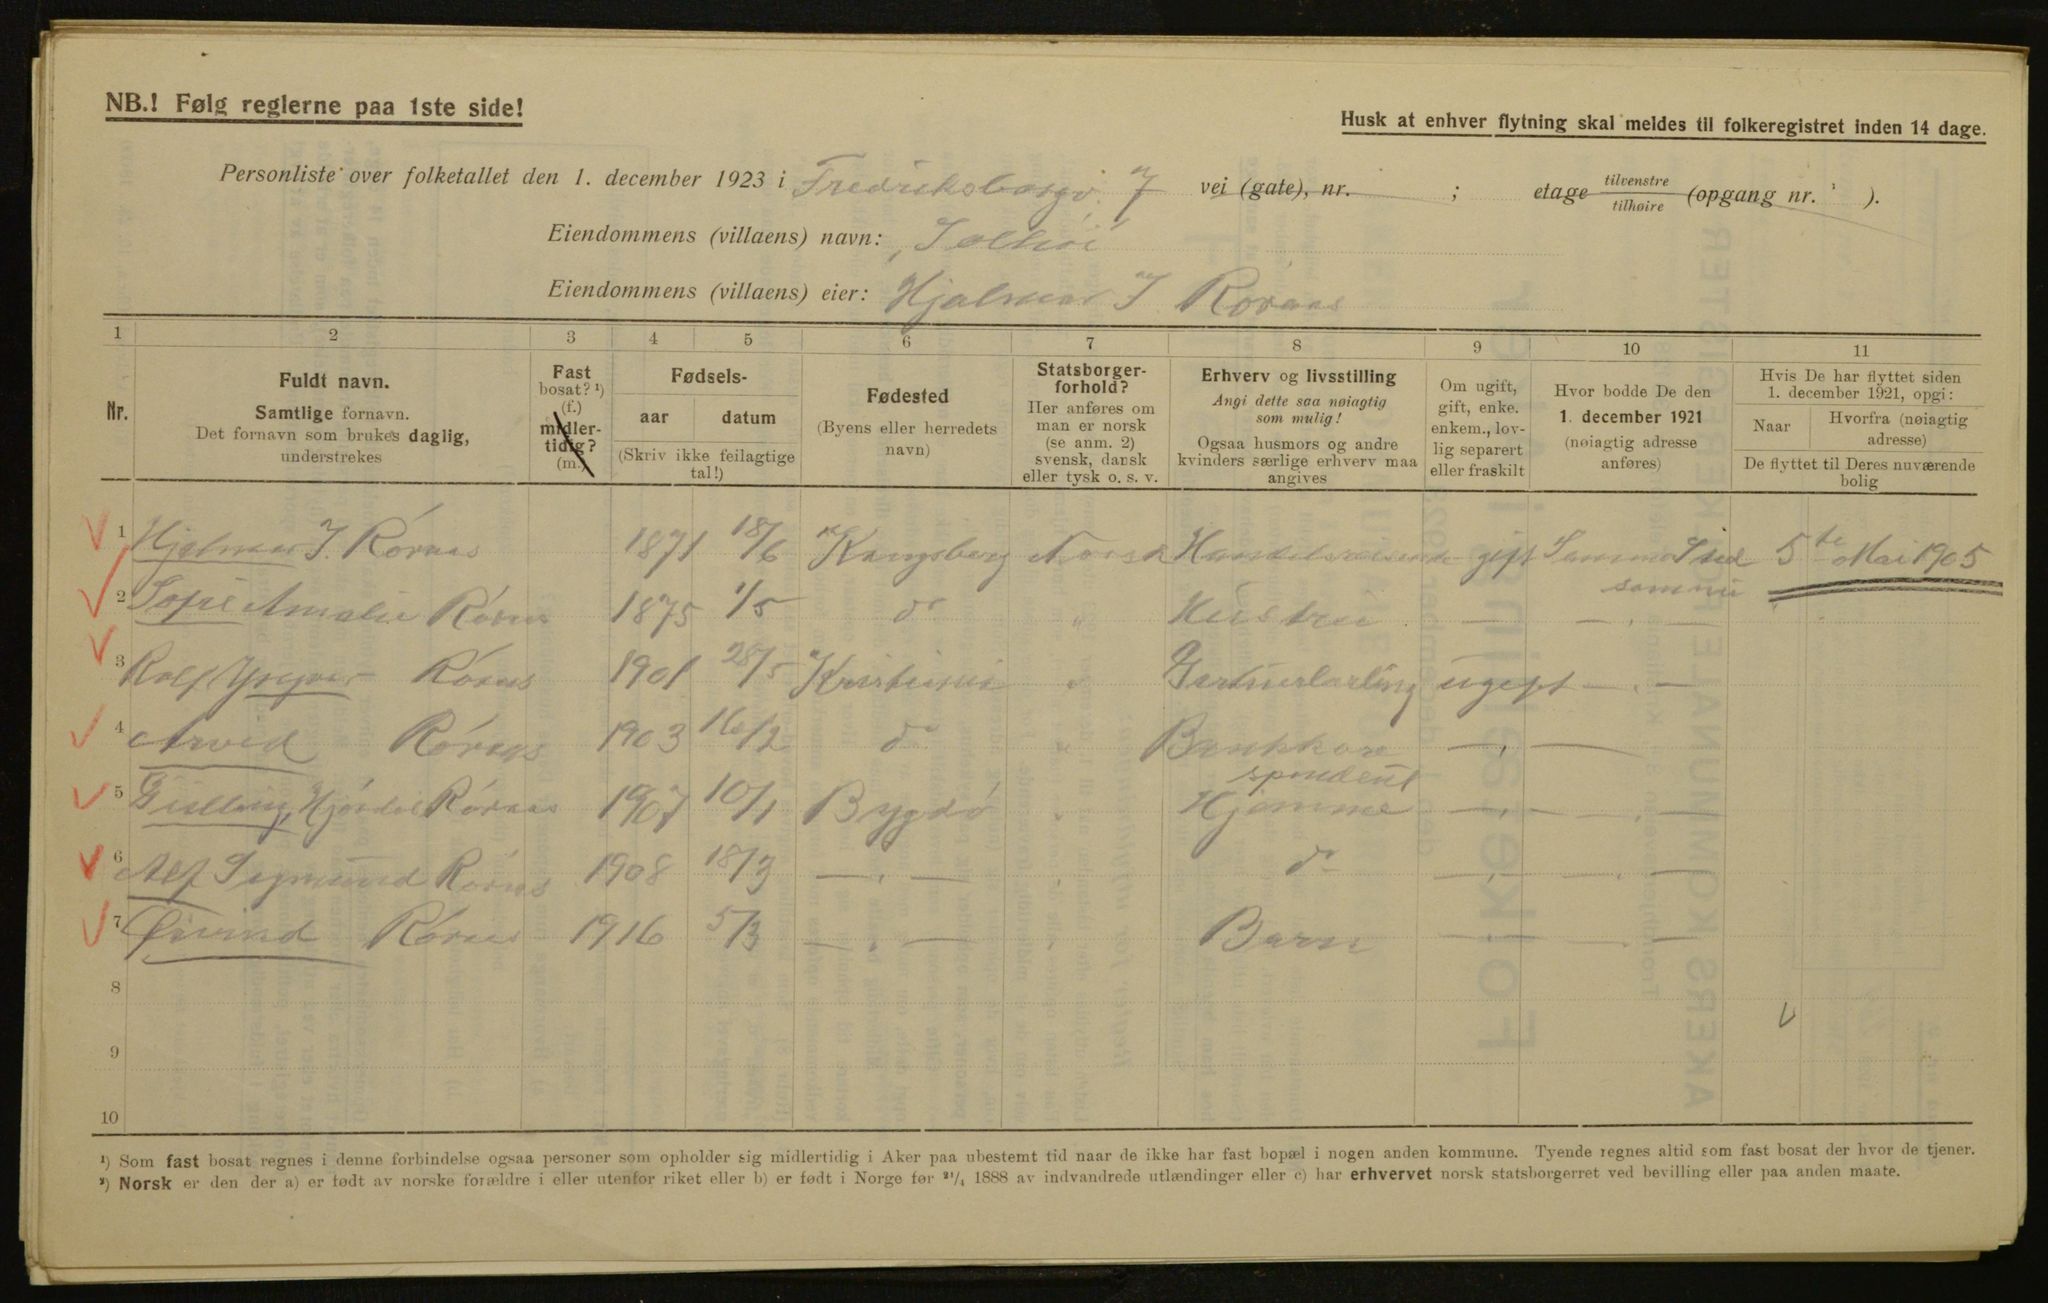 NB.! Følg reglerne paa 1ste side!
Husk at enhver flytning skal meldes til folkeregistret inden 14 dage.
Personliste over folketallet den 1. december 1923 i Fredriksborgv. 7 vei (gate), nr. ; etage tilvenstre tilhøire (opgang nr. ).
Eiendommens (villaens) navn: Solhøi
Eiendommens (villaens) eier: Hjalmar J Røraas
1 2 3 4 5 6 7 8 9 10 11
Nr.
Fuldt navn.
Samtlige fornavn.
Det fornavn som brukes daglig,
understrekes
Fast
bosat? ¹)
(f.)
midler-
tidig?
(m.)
Fødsels-
aar datum
(Skriv ikke feilagtige
tal!)
Fødested
(Byens eller herredets
navn)
Statsborger-
forhold?
Her anføres om
man er norsk
(se anm. 2)
svensk, dansk
eller tysk o. s. v.
Erhverv og livsstilling
Angi dette saa nøiagtig
som mulig!
Ogsaa husmors og andre
kvinders særlige erhverv maa
angives
Om ugift,
gift, enke.
enkem., lov-
lig separert
eller fraskilt
Hvor bodde De den
1. december 1921
(nøiagtig adresse
anføres)
Hvis De har flyttet siden
1. december 1921, opgi:
Naar Hvorfra (nøiagtig
adresse)
De flyttet til Deres nuværende
bolig
1 Hjalmar J. Røraas 1871 18/6 Kongsberg Norsk Handelsreisende gift Samme Sted 5te Mai 1905
samme
2 Sofie Amalie Røraas 1875 1/5 do " Hustru — — . —
3 Rolf Yngvar Røraas 1901 28/5 Kristiania " Gartnerlærling ugift — . —
4 Arvid Røraas 1903 16/2 do Bankkore
spondent — . — —
5 Gullaug Hjørdis Røraas 1907 10/1 Bygdø " Hjemme — . — — . —
6 Alf Sigmund Røraas 1908 18/3 — . — do — . — — . —
7 Øivind Røraas 1916 5/3 — . — Barn — . — — . —
8
9
10
¹) Som fast bosat regnes i denne forbindelse ogsaa personer som opholder sig midlertidig i Aker paa ubestemt tid naar de ikke har fast bopæl i nogen anden kommune. Tyende regnes altid som fast bosat der hvor de tjener.
²) Norsk er den der a) er født av norske forældre i eller utenfor riket eller b) er født i Norge før ²¹/₄ 1888 av indvandrede utlændinger eller c) har erhvervet norsk statsborgerret ved bevilling eller paa anden maate.